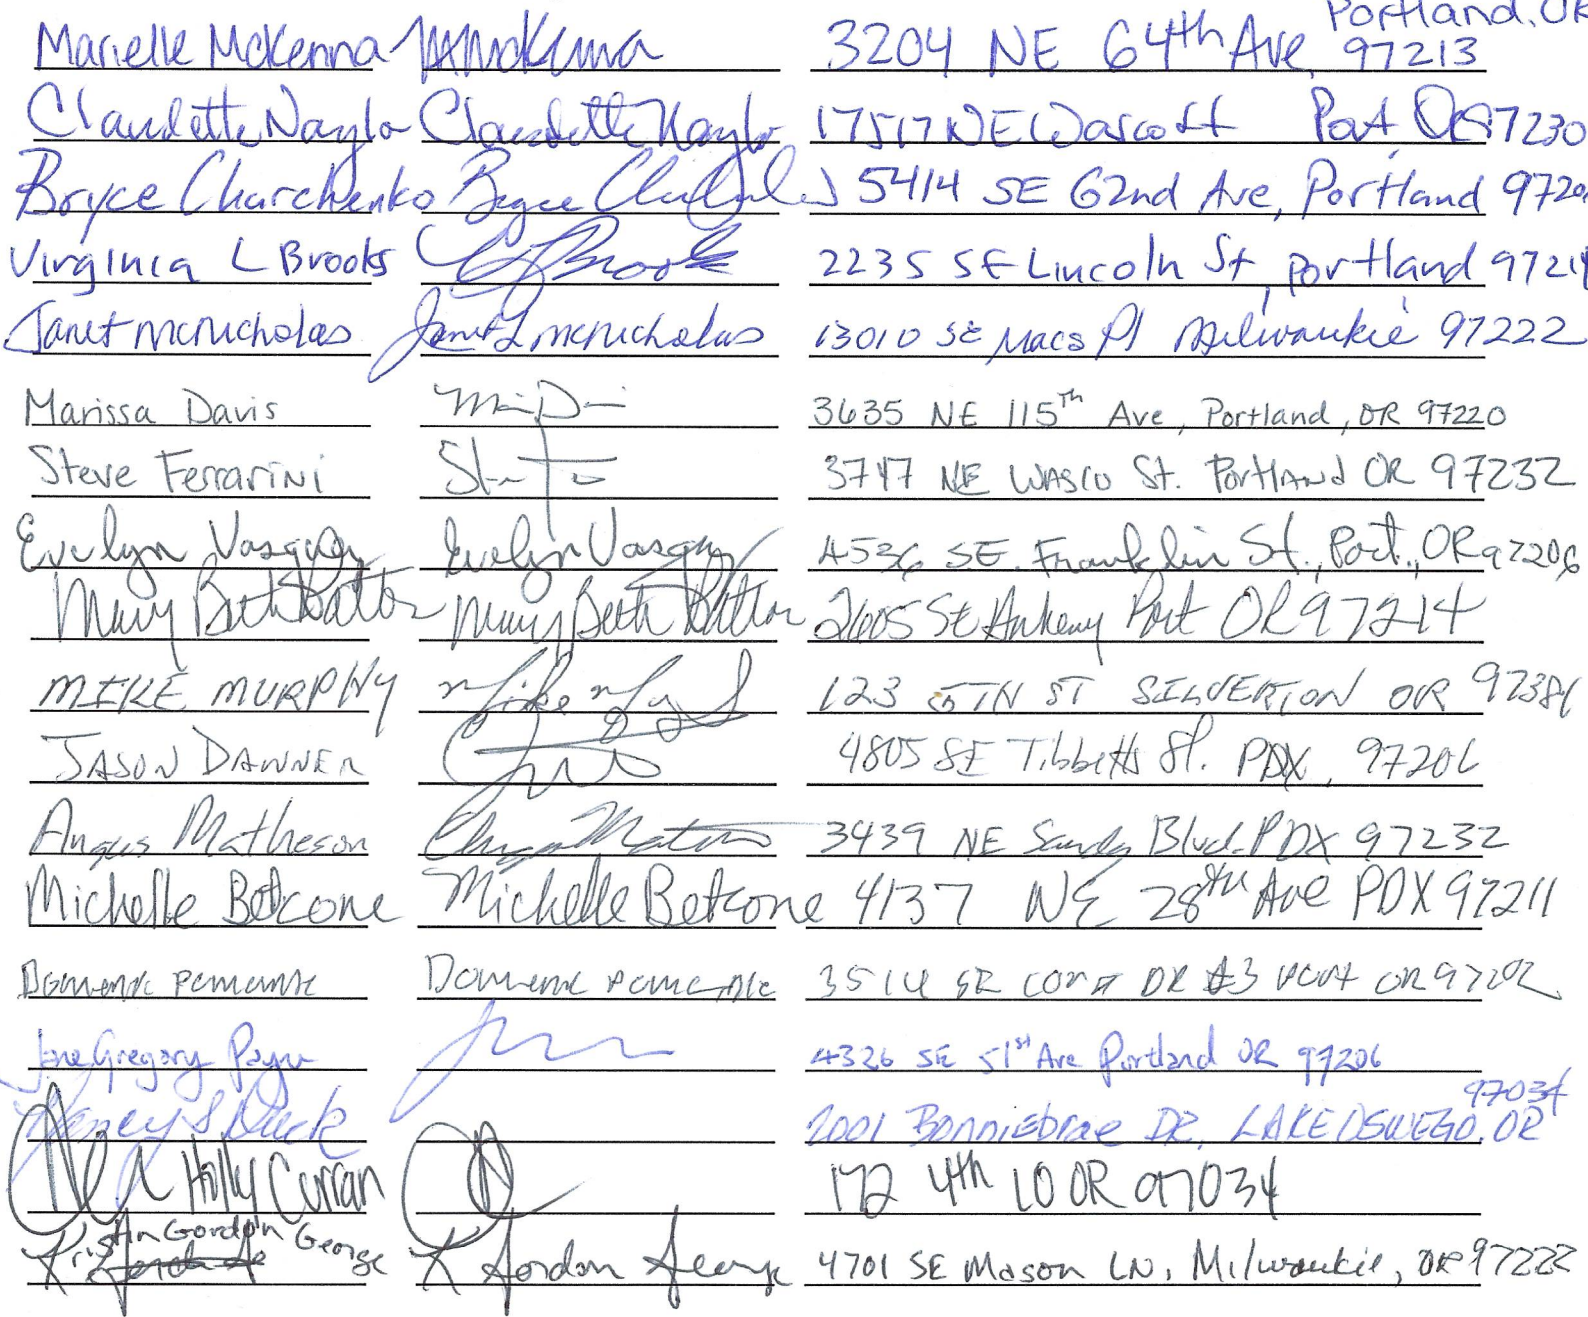 Portland, OR
Marielle McKenna MMcKenna 3204 NE 64th Ave, 97213
Claudette Naylor Claudette Naylor 17517 NE Wasco St Port, OR 97230
Bryce Charchenko Bryce 5414 SE 62nd Ave, Portland
Virginia L Brooks Brooks 2235 SE Lincoln St, Portland 97214
Janet McNicholas Janet L McNicholas 13010 SE Macs Pl Milwaukie 97222
Marissa Davis 3635 NE 115th Ave, Portland, OR 97220
Steve Ferrarini 3747 NE WASCO St. Portland OR 97232
Evelyn Vasquez Evelyn Vasquez 4536 SE. Franklin St., Port., OR 97206
Mary Beth Mary Beth 2605 SE Ankeny Port OR 97214
MIKE MURPHY Mike 123 5TH ST SILVERTON OR 97381
JASON DANNER 4805 SE Tibbetts St. PDX, 97206
Angus Matheson 3439 NE Sandy Blvd. PDX 97232
Michelle Betcone Michelle Betcone 4137 NE 28th Ave PDX 97211
3514 SE DR #3 OR 97202
Gregory 4326 SE 51st Ave Portland OR 97206
97034
Nancy S Duck 2001 Bonniebrae DR, LAKE OSWEGO, OR
Holly Curran 172 4th LO OR 97034
Kristin Gordon George K Gordon George 4701 SE Mason LN, Milwaukie, OR 97222